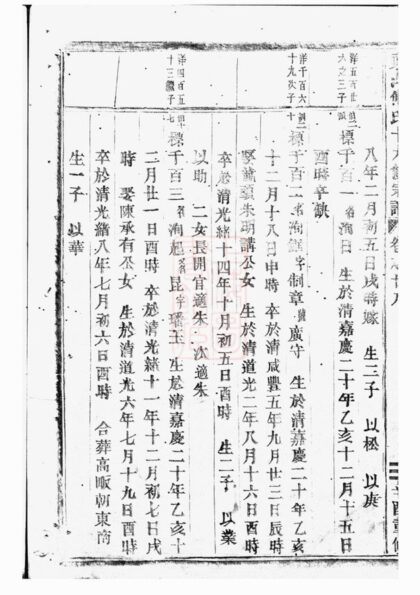 氏十八
八年二月初五日戌時嫁 生三子 以松 以庚
標于百一 名洵日 生於清嘉慶二十年乙亥十二月十五日
酉時卒缺
標于百二 名洵 字制章 號廣守 生於清嘉慶二十年乙亥
十二月十八日申時 卒於清咸豐五年九月廿三日辰時
娶 鎮朱明講公女 生於清道光二年八月十六日酉時
卒於清光緒十四年十月初五日酉時 生一子 以業
以助 二女長開官適朱 次適朱
標于百三 名洵 字昆 號 玉 生於清嘉慶二十年乙亥十
二月廿一日酉時 卒於清光緒十一年十二月初七日戌
時 娶陳承有公女 生於清道光六年七月十九日酉時
卒於清光緒八年七月初六日酉時 合葬高畈朝東南
生一子 以華
洋五百
六 三子
洋千百六
十九次子
洋四百五
十三 子